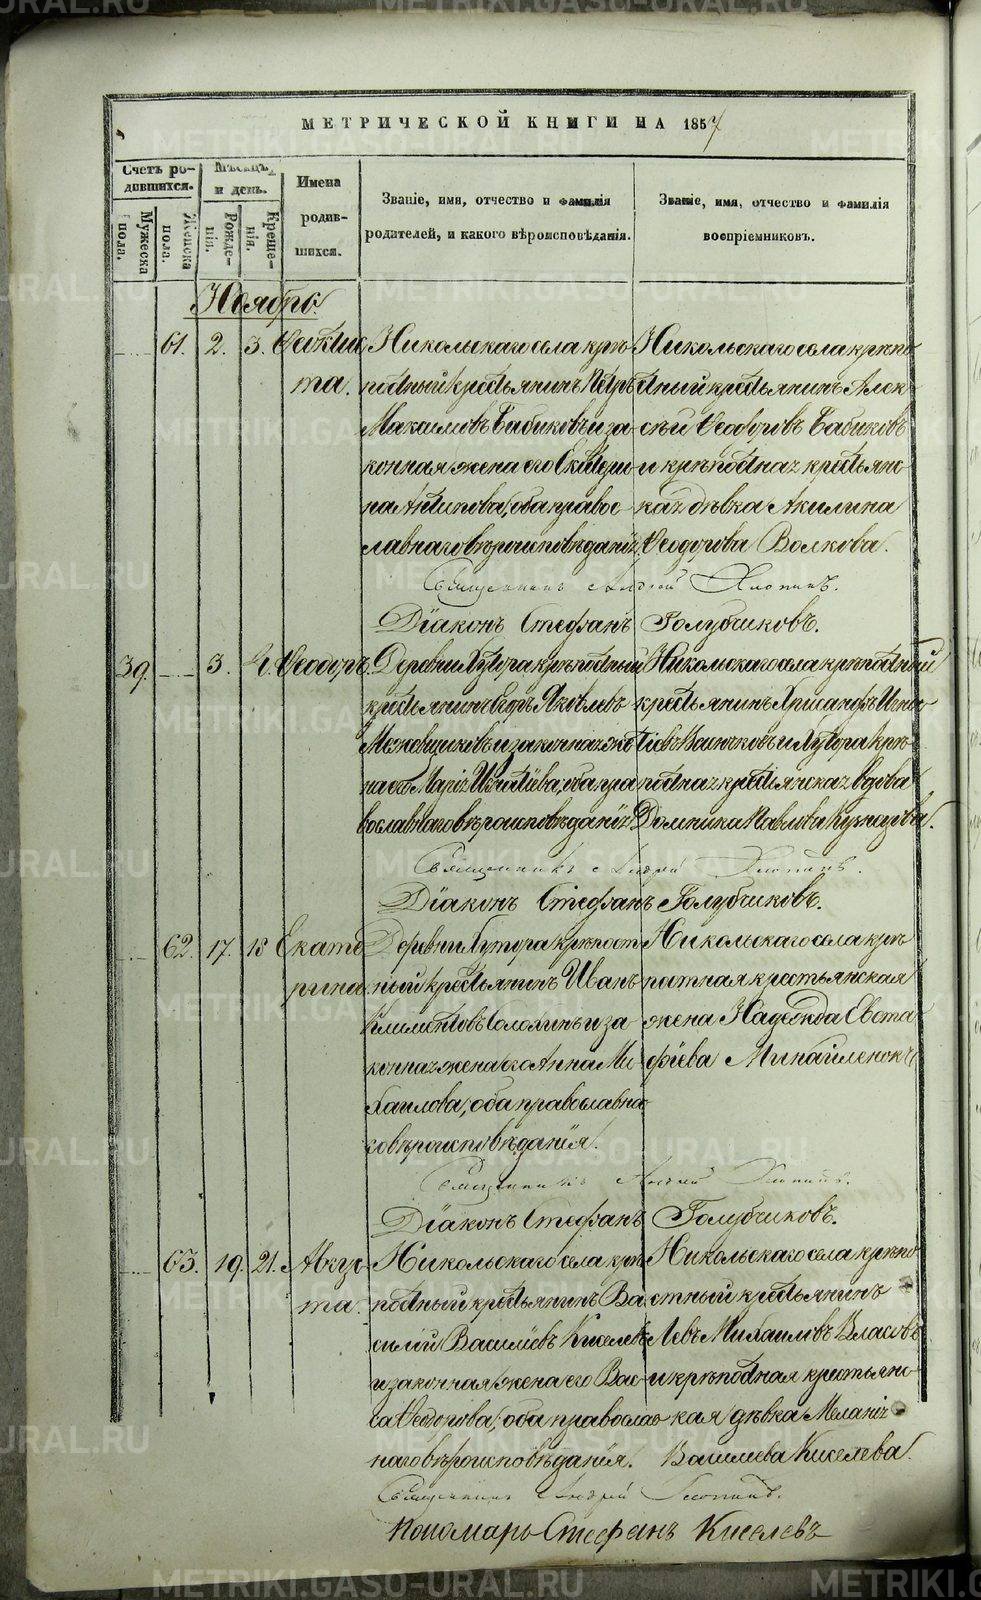 МЕТРИЧЕСКОЙ КНИГИ НА 1857
Счетъ ро-
дившихся.
Мужеска
пола.
Женска
пола.
Мѣсяцъ
и день.
Рожде-
нія.
Креще-
нія.
Имена
родив-
шихся.
Званіе, имя, отчество и фамилія
родителей, и какого вѣроисповѣданія.
Званіе, имя, отчество и фамилія
воспріемниковъ.
Ноябрь.
61. 2. 3. Ѳеоктис
та.
Никольскаго села крѣ
постный крестьянинъ Петръ
Максимовъ Бабиковъ и за-
конная жена его Екатери
на Антипова, оба правос
лавнаго вѣроисповѣданія
Никольскаго села крѣпо
стный крестьянинъ Алек
сѣй Ѳеодоровъ Бабиковъ
и крѣпостная крестьянс
кая дѣвка Акилина
Ѳеодорова Волкова.
Священникъ Андрей Хлопинъ.
Діаконъ Стефанъ Голубчиковъ.
39. 3. 4. Ѳеодоръ.
Деревни Хутора крѣпостный
крестьянинъ Егоръ Яковлевъ
Межевщиковъ и законная же
на его Марія Игнатіева, оба пра
вославнаго вѣроисповѣданія
Никольскаго села крѣпостный
крестьянинъ Хрисанфъ Игна
тіевъ и Хутора крѣ
постная крестьянская вдова
Домника Павлова Кузнецова.
Священникъ Андрей Хлопинъ.
Діаконъ Стефанъ Голубчиковъ.
62. 17. 18 Екате
рина.
Деревни Хутора крѣпост
ный крестьянинъ Иванъ
Климентовъ Соломинъ и за
конная жена его Анна Ми
хаилова, оба православна
го вѣроисповѣданія.
Никольскаго села крѣ
постная крестьянская
жена Надежда Евста
фіева
Священникъ Андрей Хлопинъ.
Діаконъ Стефанъ Голубчиковъ.
63. 19. 21. Авгус
та.
Никольскаго села крѣ
постный крестьянинъ Ва
силій Василіевъ Киселевъ
и законная жена его Вас
са Ѳеодорова, оба православ
наго вѣроисповѣданія.
Никольскаго села крѣпо
стный крестьянинъ
Левъ Михаиловъ Власовъ
и крѣпостная крестьянс
кая дѣвка Меланія
Василіева Киселева.
Священникъ Андрей Хлопинъ.
Пономарь Стефанъ Киселевъ
METRIKI.GASO-URAL.RU